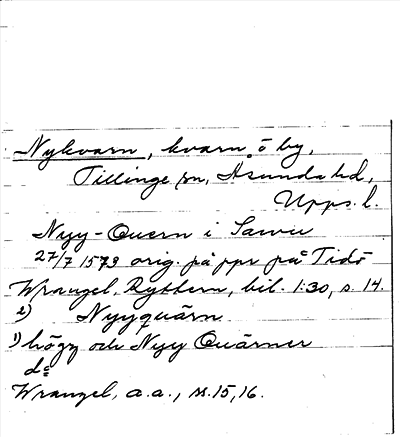 Nykvarn, kvarn o by,
Tillinge sn, Åsunda hd,
Upps. l.
Nyy-Quern i Sawu
27/7 1579 orig. på ppr på Tidö
Wrangel, Ryttern, bil. 1:30, s. 14.
2) Nyyquärn
1) högz och Nyy Quärner
do
Wrangel, a.a., ss. 15, 16.